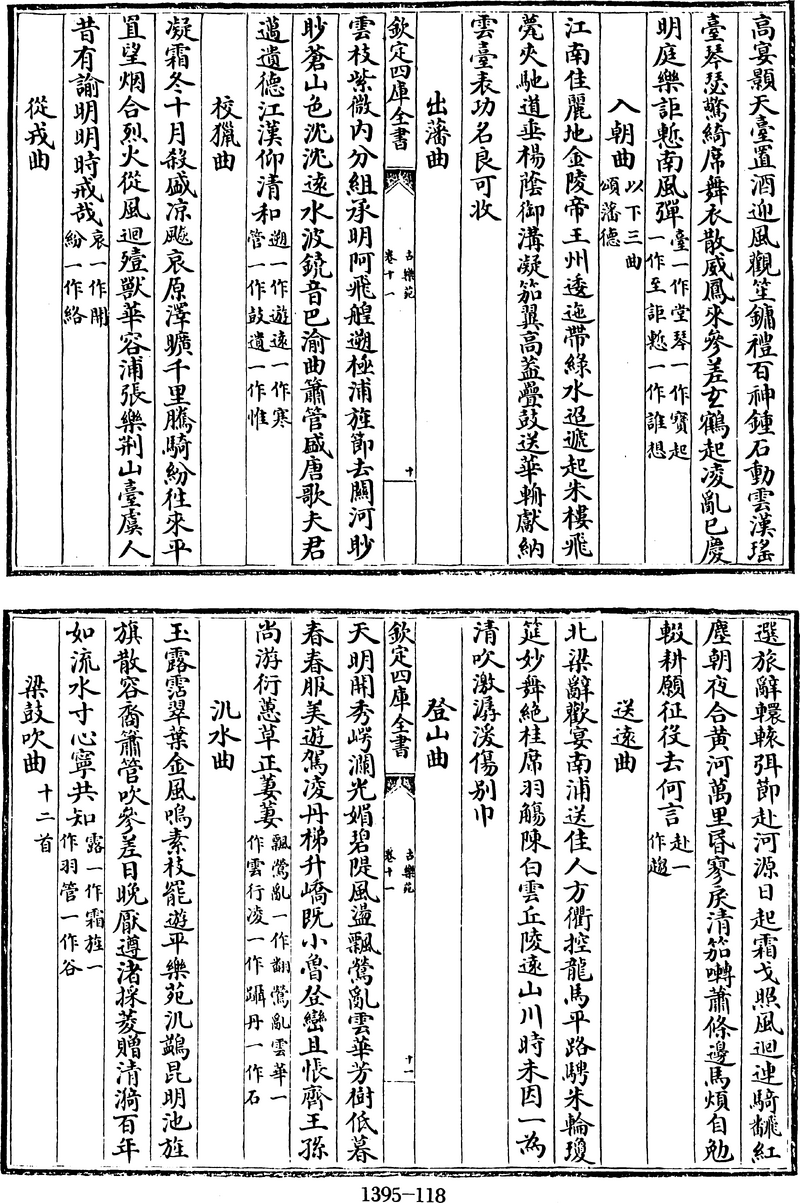 高宴顥天臺置酒迎風觀笙鏞禮百神鍾石動雲漢瑤
臺琴瑟驚綺席舞衣散威鳳來參差玄鶴起凌亂已慶
明庭樂詎慙南風彈臺一作堂琴一作寳起一作至詎慙一作誰想
入朝曲以下三曲頌藩德
江南佳麗地金陵帝王州逶迤帶綠水迢遞起朱樓飛
甍夾馳道垂楊蔭御溝凝笳翼高蓋疊鼓送華輈獻納
雲臺表功名良可收
出藩曲
欽定四庫全書
古樂苑
卷十一
十
雲枝紫微内分組承明阿飛艎遡極浦旌節去關河眇
眇蒼山色沈沈遠水波鐃音巴渝曲簫管盛唐歌夫君
邁遺德江漢仰清和遡一作遊遠一作寒管一作鼓遺一作惟
校獵曲
凝霜冬十月殺盛凉飈哀原澤曠千里騰騎紛往來平
罝望烟合烈火從風迴殪獸華容浦張樂荆山臺虞人
昔有諭明明時戒哉哀一作開紛一作絡
從戎曲
選旅辭轘轅弭節赴河源日起霜戈照風迴連騎翻紅
塵朝夜合黄河萬里昏寥戾清笳囀蕭條邊馬煩自勉
輟耕願征役去何言赴一作趨
送遠曲
北梁辭歡宴南浦送佳人方衢控龍馬平路騁朱輪瓊
筵妙舞絶桂席羽觴陳白雲丘陵遠山川時未因一為
清吹激潺湲傷别巾
登山曲
欽定四庫全書
古樂苑
卷十一
十一
天明開秀崿瀾光媚碧隄風盪飄鶯亂雲華芳樹低暮
春春服美遊駕凌丹梯升嶠既小魯登巒且悵齊王孫
尚游衍蕙草正萋萋飄鶯亂一作翻鶯亂雲華一作雲行凌一作躡丹一作石
汎水曲
玉露霑翠葉金風鳴素枝罷遊平樂苑汎鷁昆明池旌
旗散容裔簫管吹參差日晚厭遵渚採菱贈清漪百年
如流水寸心寧共知露一作霜旌一作羽管一作谷
梁鼓吹曲十二首
1395-118